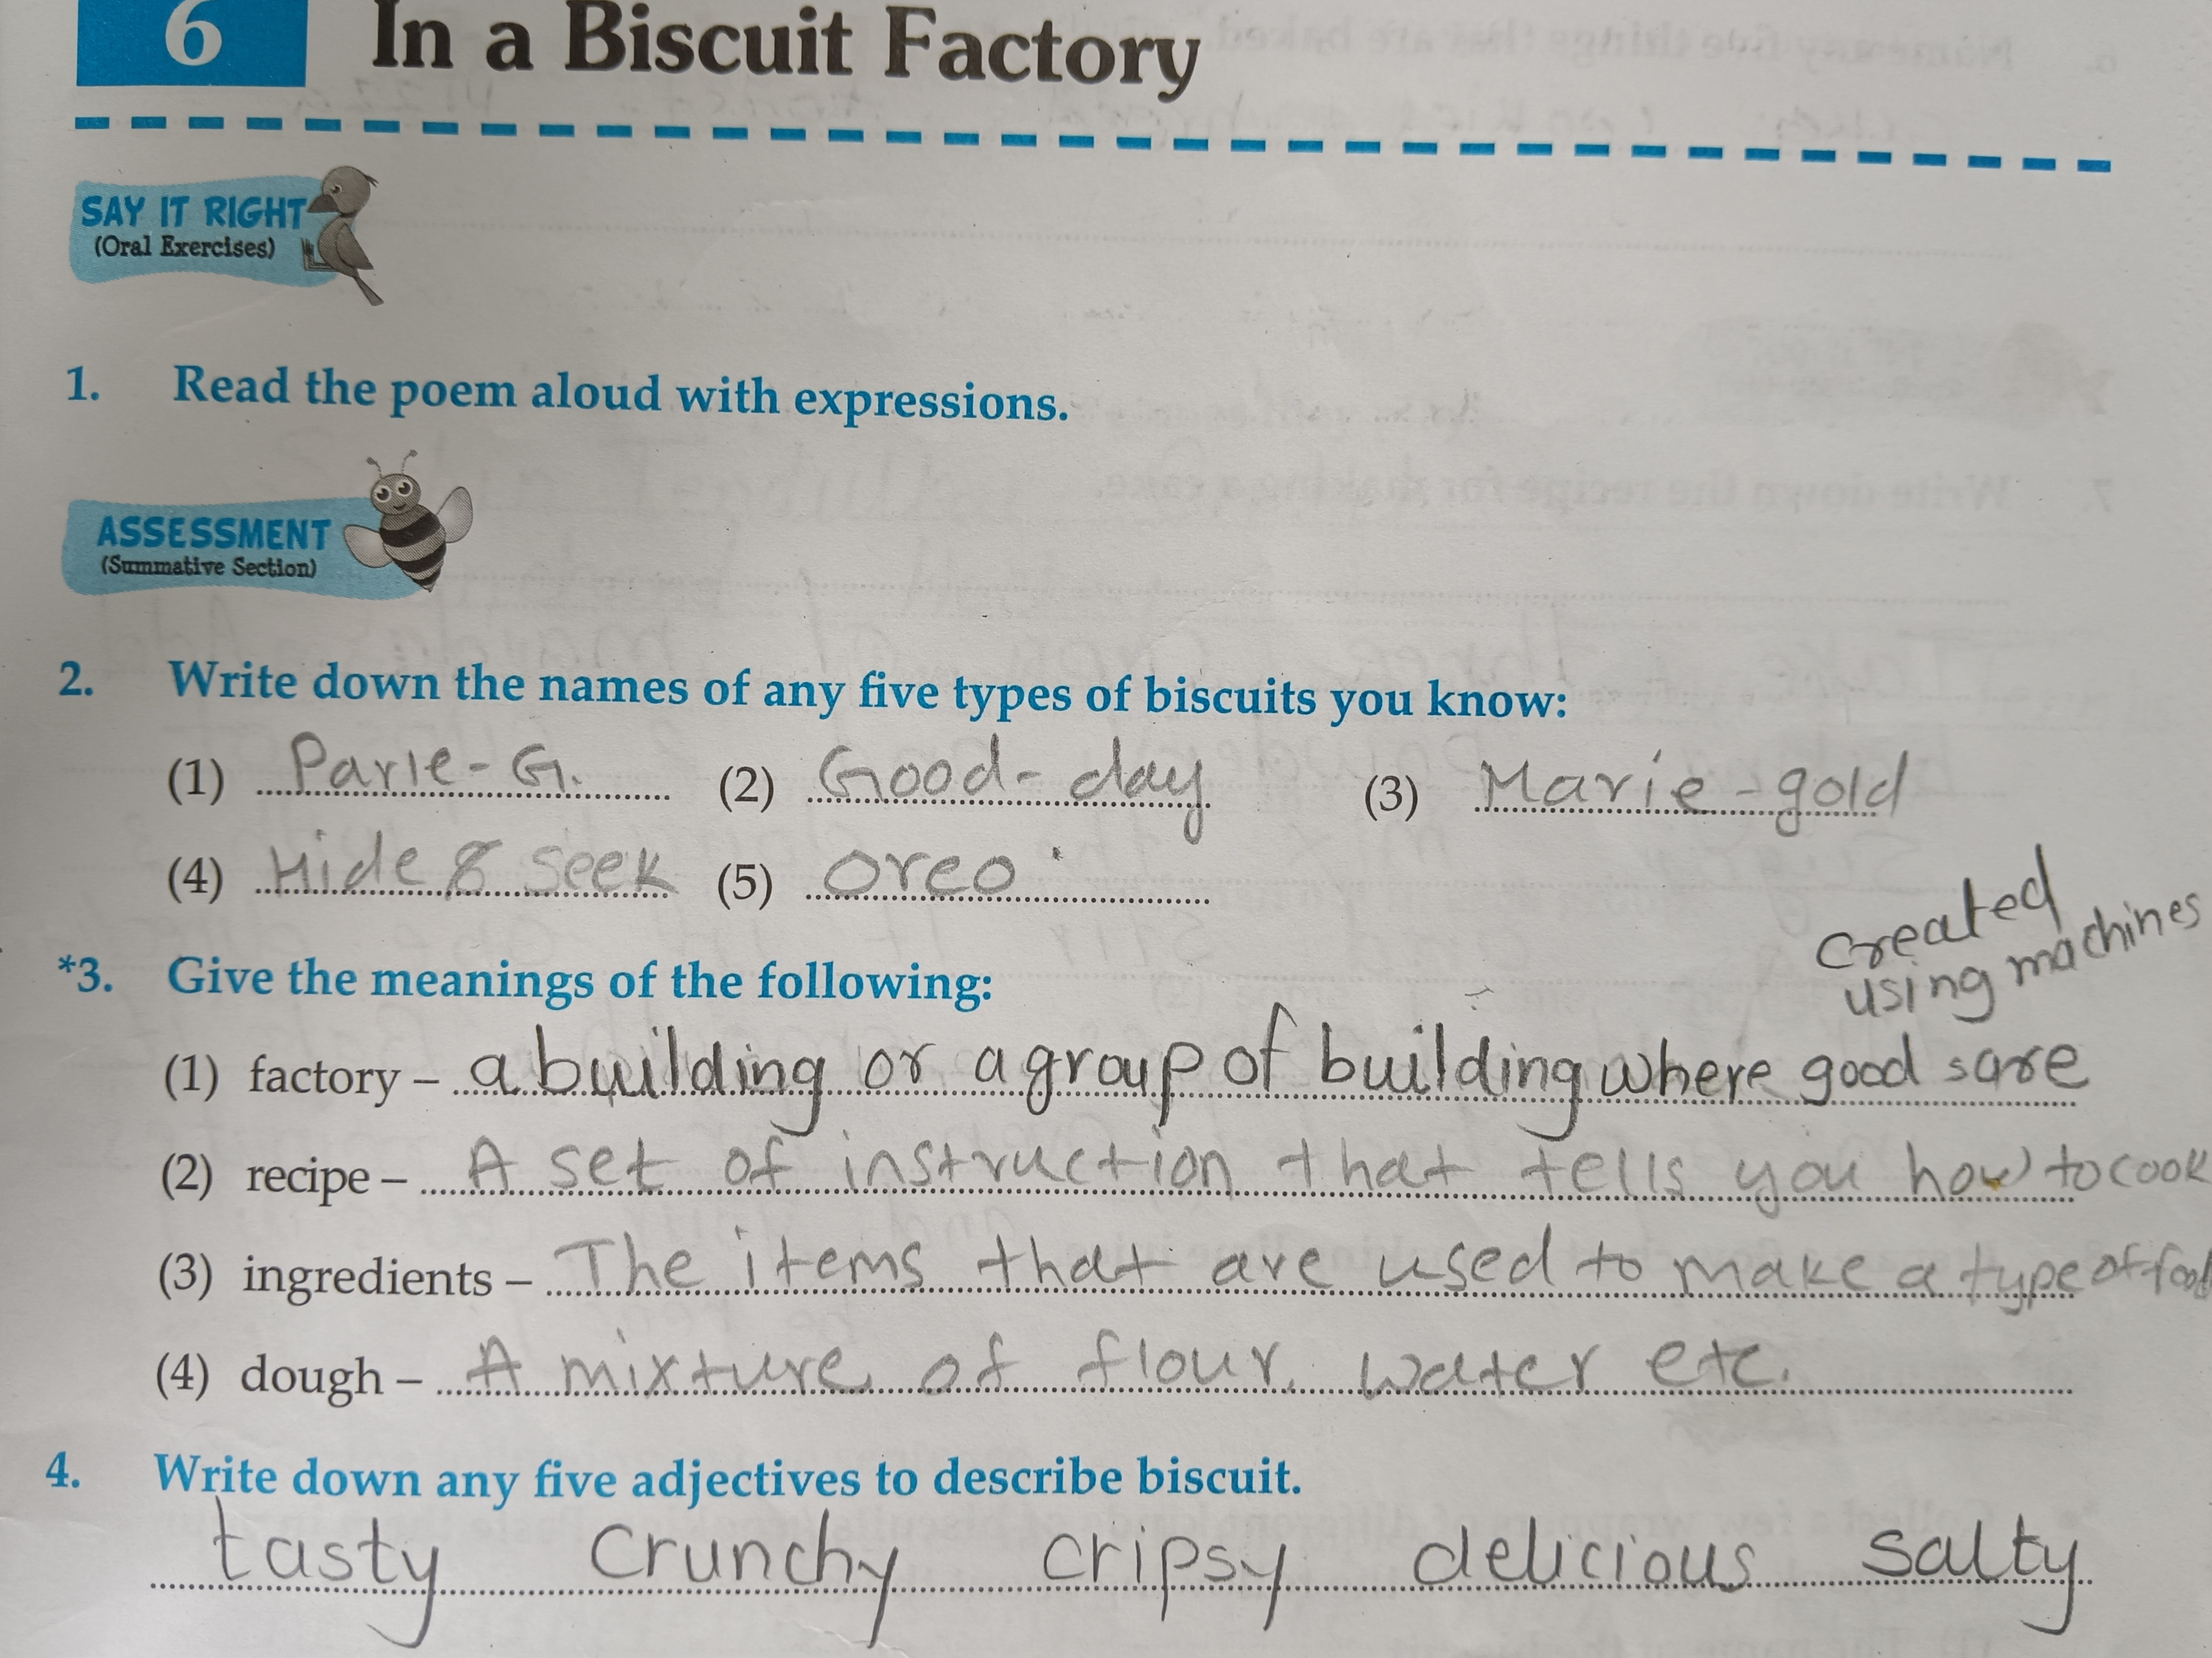 6 In a Biscuit Factory
SAY IT RIGHT
(Oral Exercises)
1. Read the poem aloud with expressions.
ASSESSMENT
(Summative Section)
2. Write down the names of any five types of biscuits you know:
(1) Parle-G. (2) Good-day (3) Marie-gold
(4) Hide & Seek (5) Oreo
created
using machines
*3. Give the meanings of the following:
(1) factory – a building or a group of building where good sare
(2) recipe – A set of instruction that tells you how to cook
(3) ingredients – The items that are used to make a type of food
(4) dough – A mixture of flour, water etc.
4. Write down any five adjectives to describe biscuit.
tasty crunchy cripsy delicious salty